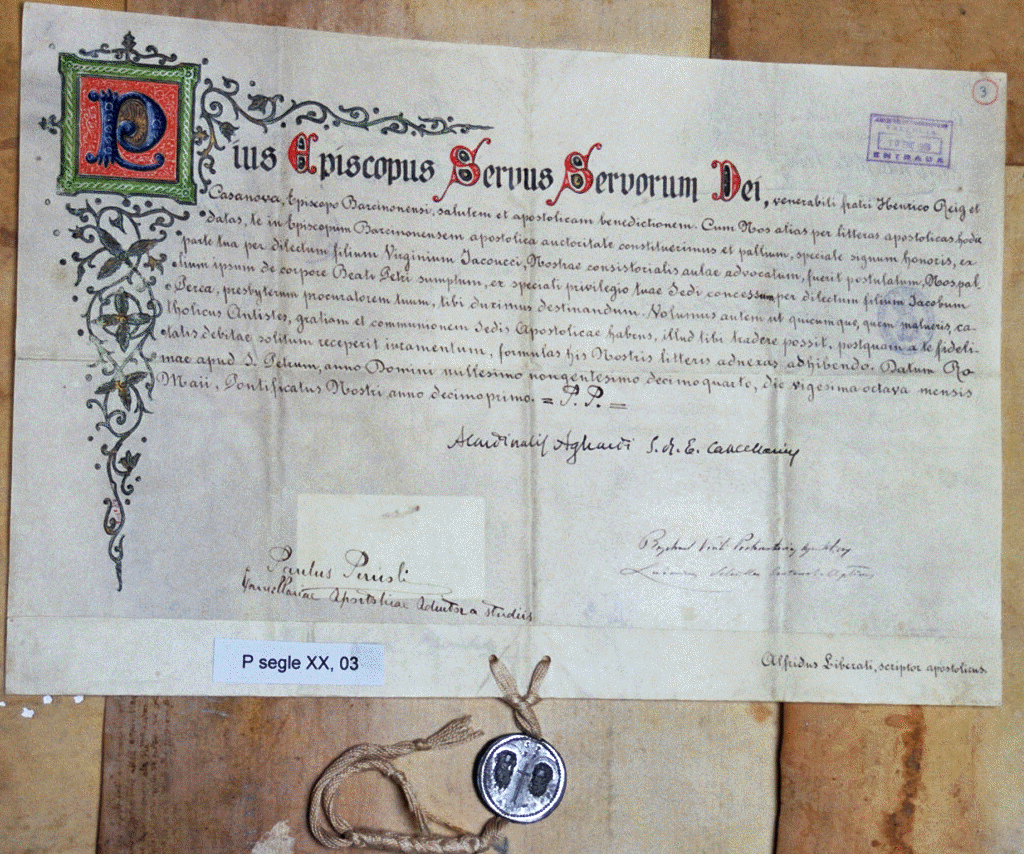 3
ENTRADA
Pius Episcopus Servus Servorum Dei, venerabili fratri Henrico Reig et
Casanova, Episcopo Barcinonensi, salutem et apostolicam benedictionem. Cum Nos alias per litteras apostolicas hodie
datas, te in Episcopum Barcinonensem apostolica auctoritate constituerimus et pallium, speciale signum honoris, ex
parte tua per dilectum filium Virginium Jacoucci, Nostrae consistorialis aulae advocatum, fuerit postulatum, Nos pal-
lium ipsum de corpore Beati Petri sumptum, ex speciali privilegio tuae Sedi concessum per dilectum filium Jacobum
Serca, presbyterum procuratorem tuum, tibi duximus destinandum. Volumus autem ut quicumque, quem malueris, ca-
tholicus Antistes, gratiam et communionem Sedis Apostolicae habens, illud tibi tradere possit, postquam a te fideli-
tatis debitae solitum receperit iuramentum, formulas his Nostris litteris adnexas adhibendo. Datum Ro-
mae apud S. Petrum, anno Domini millesimo nongentesimo decimoquarto, die vigesima octava mensis
Maii, Pontificatus Nostri anno decimoprimo. = P. P. =
A Cardinalis Agliardi S. R. E. Cancellarius
Paulus Pericoli
Cancellariae Apostolicae Adiutor a studiis
Alfridus Liberati, scriptor apostolicus.
P segle XX, 03